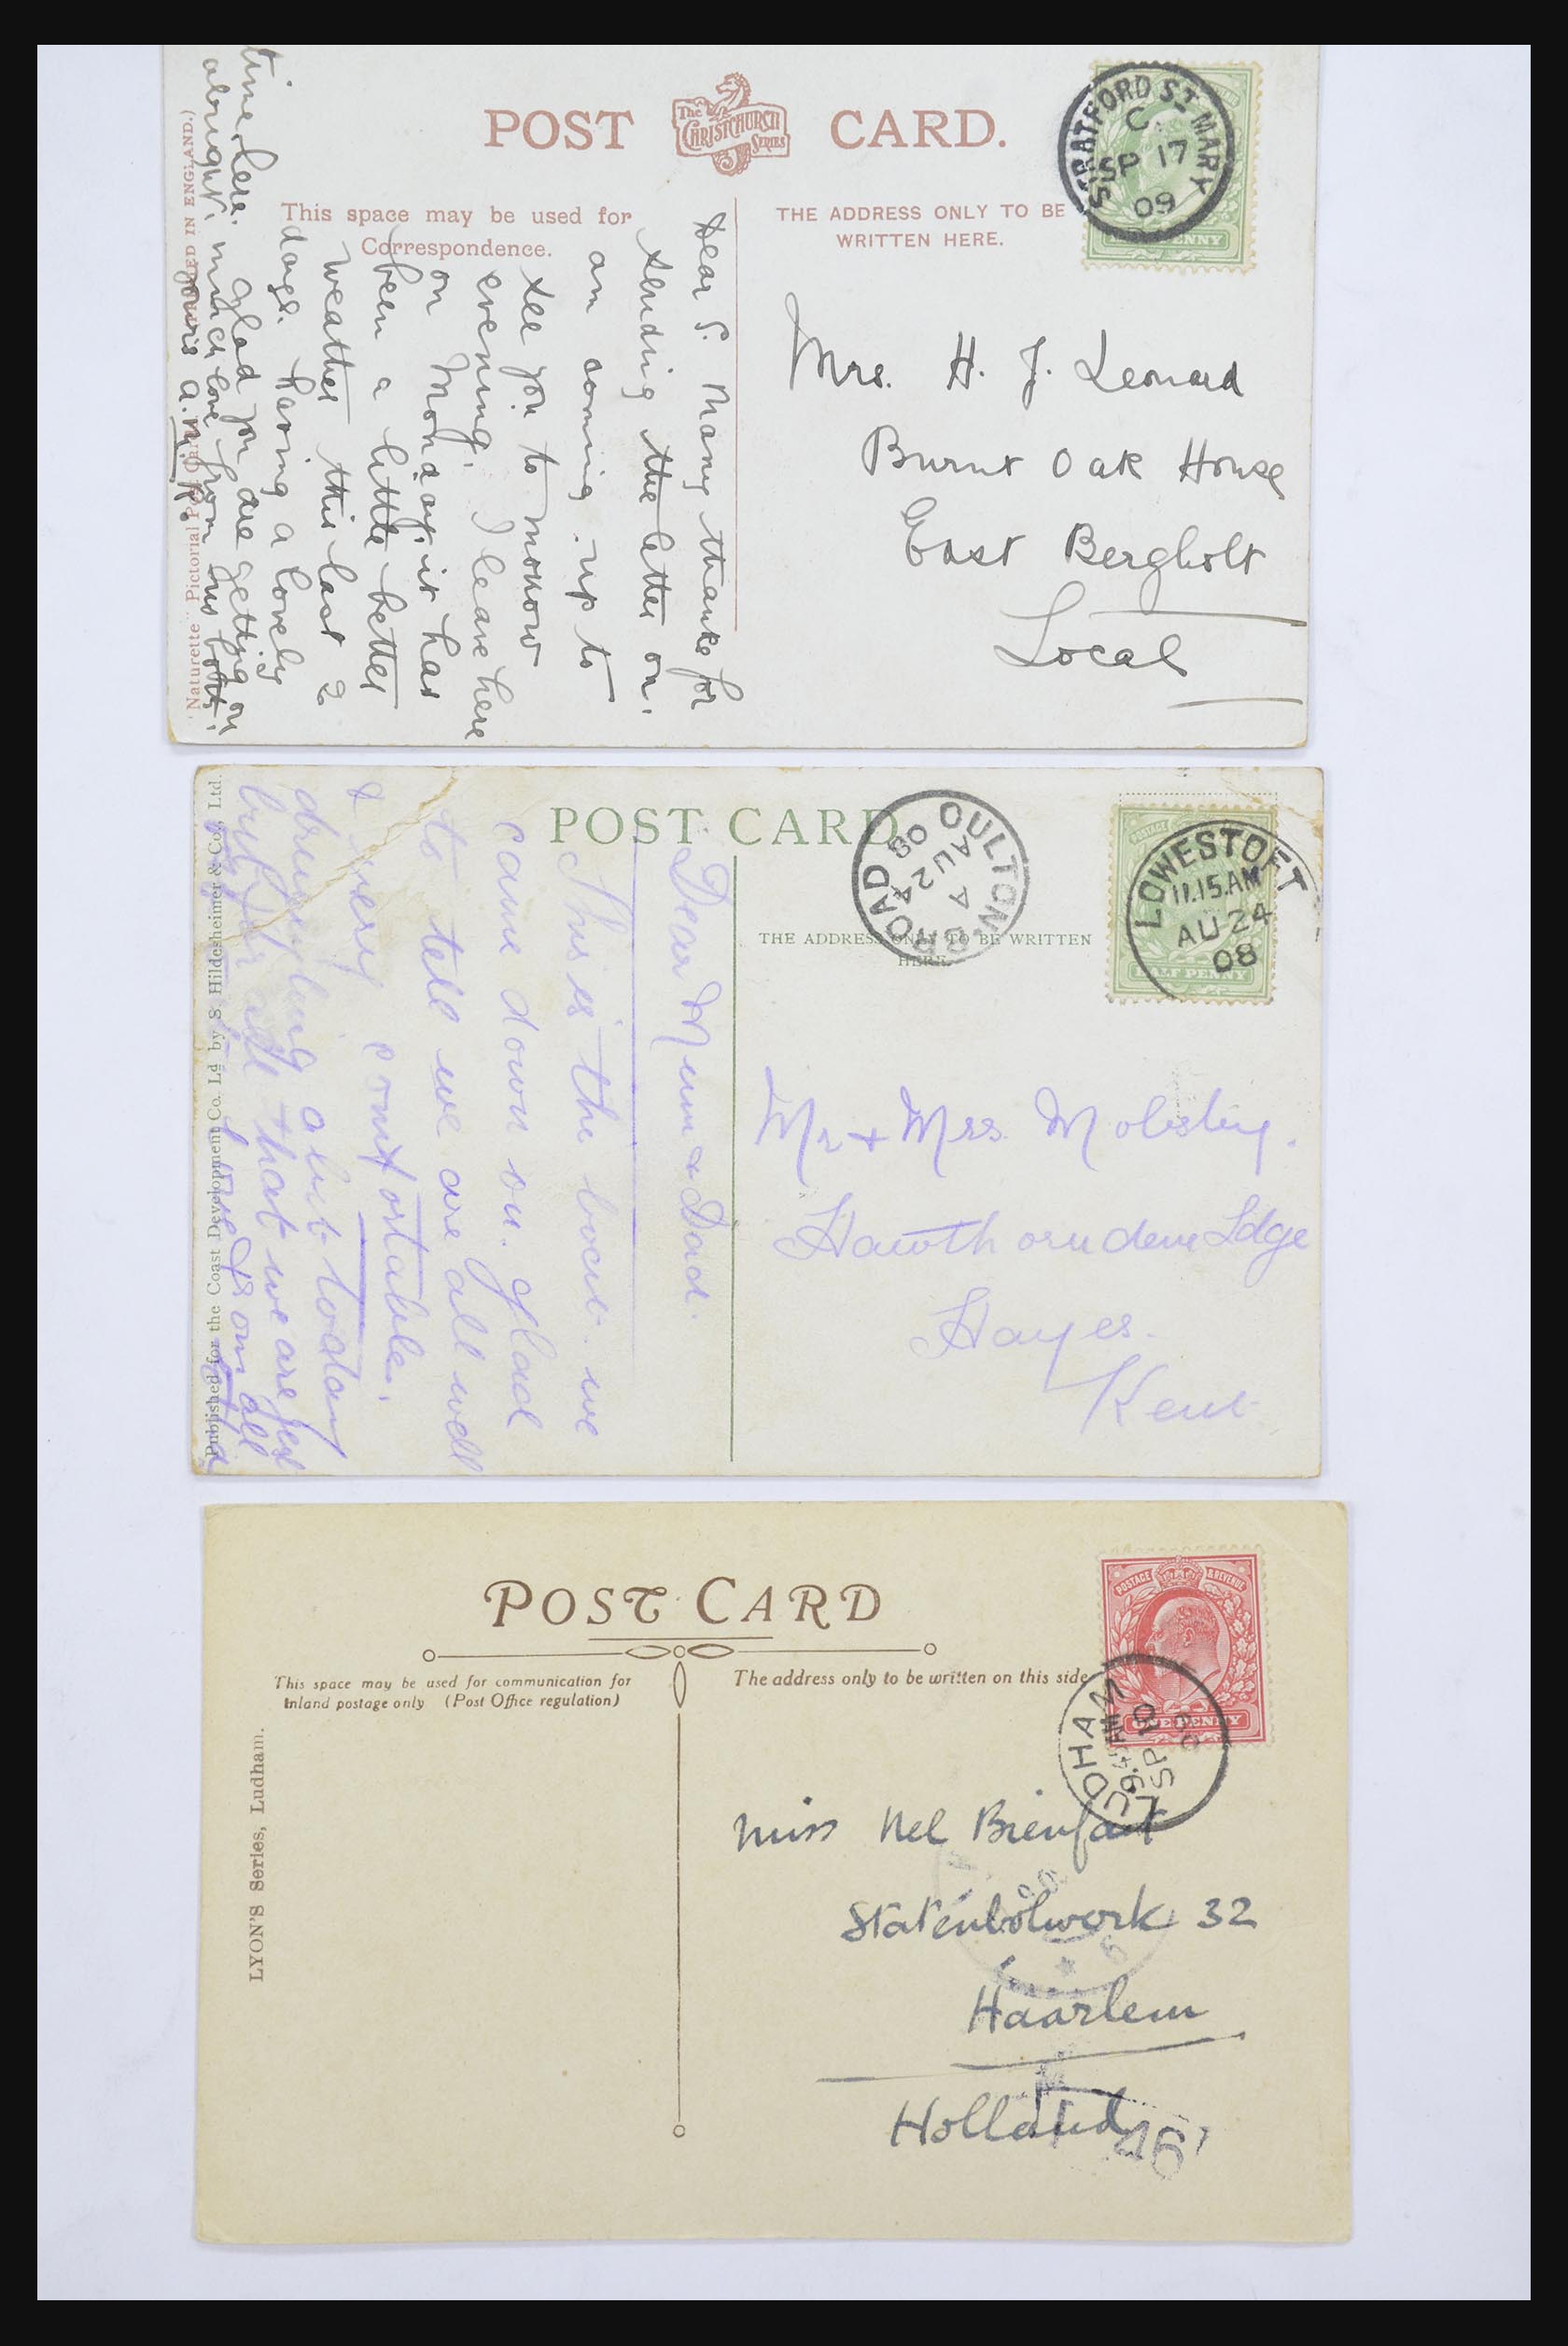 POST The CHRISTCHURCH SERIES CARD.
STRATFORD ST MARY
C.
SP 17
09
This space may be used for
Correspondence.
THE ADDRESS ONLY TO BE
WRITTEN HERE.
Dear S. Many thanks for
sending the letter on.
am coming up to
see you to morrow
evening. I leave here
on Monday. it has
been a little better
weather this last 2
days. Having a lovely
Glad you are getting on
time here.
alright. much love from
yours A.M.
Mrs. H. J. Leonard
Burnt Oak House
East Bergholt
Local
"Naturette" Pictorial Post Card
IN ENGLAND.)
POST CARD
OULTON-BROAD
A
AU 24
08
LOWESTOFT
11.15.AM
AU 24
08
HALF PENNY
THE ADDRESS ONLY TO BE WRITTEN
HERE.
Dear Mum & Dad.
This is the boat we
came down on. glad
to tell we are all well
& very comfortable.
drizzling a bit today
but for all that we are
love from all
Mr & Mrs Mobsby.
Hawthorndene Ldge
Hayes.
Kent
Published for the Coast Development Co. Ld by S. Hildesheimer & Co., Ltd.
POST CARD
POSTAGE & REVENUE
ONE PENNY
LUDHAM
9.45AM
SP 10
09
This space may be used for communication for
Inland postage only (Post Office regulation)
The address only to be written on this side
LYON'S Series, Ludham.
Miss Nel Bienfait
Statenbolwerk 32
Haarlem
Holland
46